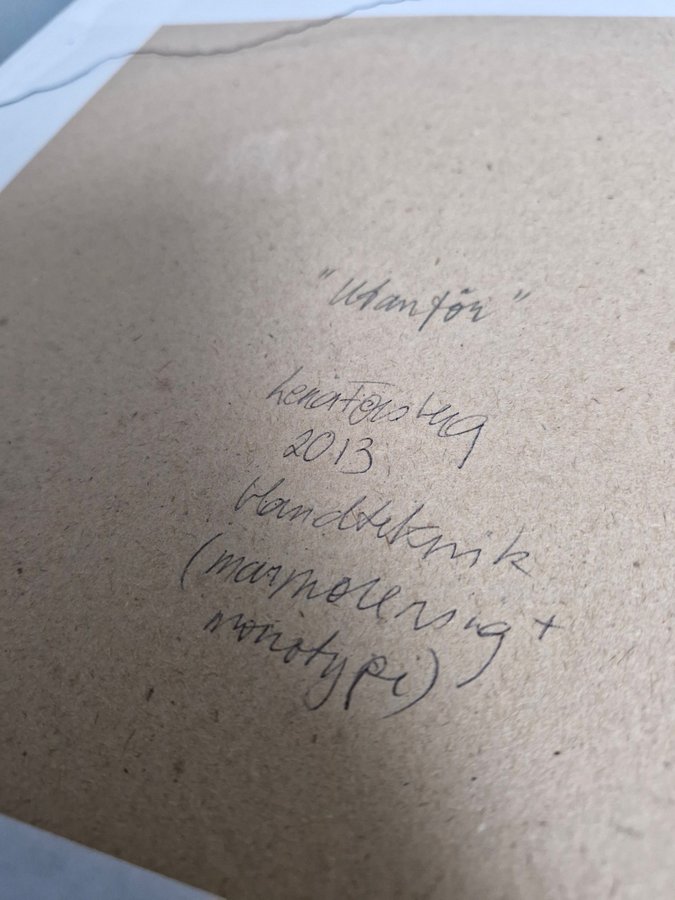 "Utanför"
Lena Forsberg
2013
Blandteknik
(marmorering +
monotypi)